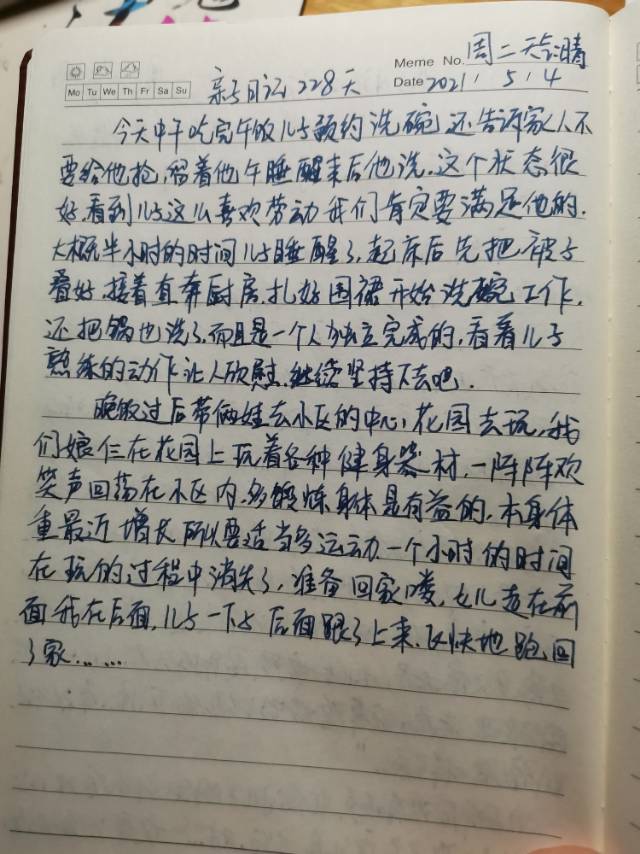 Meme No. 周二天气晴
Mo Tu We Th Fr Sa Su
亲子日记228天
Date 2021/5/4
今天中午吃完午饭儿子预约洗碗还告诉家人不
要给他抢,留着他午睡醒来后他洗.这个状态很
好看到儿子这么喜欢劳动我们肯定要满足他的.
大概半小时的时间儿子睡醒了,起床后先把被子
叠好,接着直奔厨房,扎好围裙开始洗碗工作,
还把锅也洗了,而且是一个人独立完成的,看着儿子
熟练的动作让人欣慰.继续坚持下去吧.
晚饭过后带俩娃去小区的中心花园去玩,我
们娘仨在花园上玩着各种健身器材,一阵阵欢
笑声回荡在小区内.多锻炼身体是有益的,本身体
重最近增长所以要适当多运动.一个小时的时间
在玩的过程中消失了,准备回家喽,女儿走在前
面我在后面,儿子一下子后面跟了上来.飞快地跑回
了家……